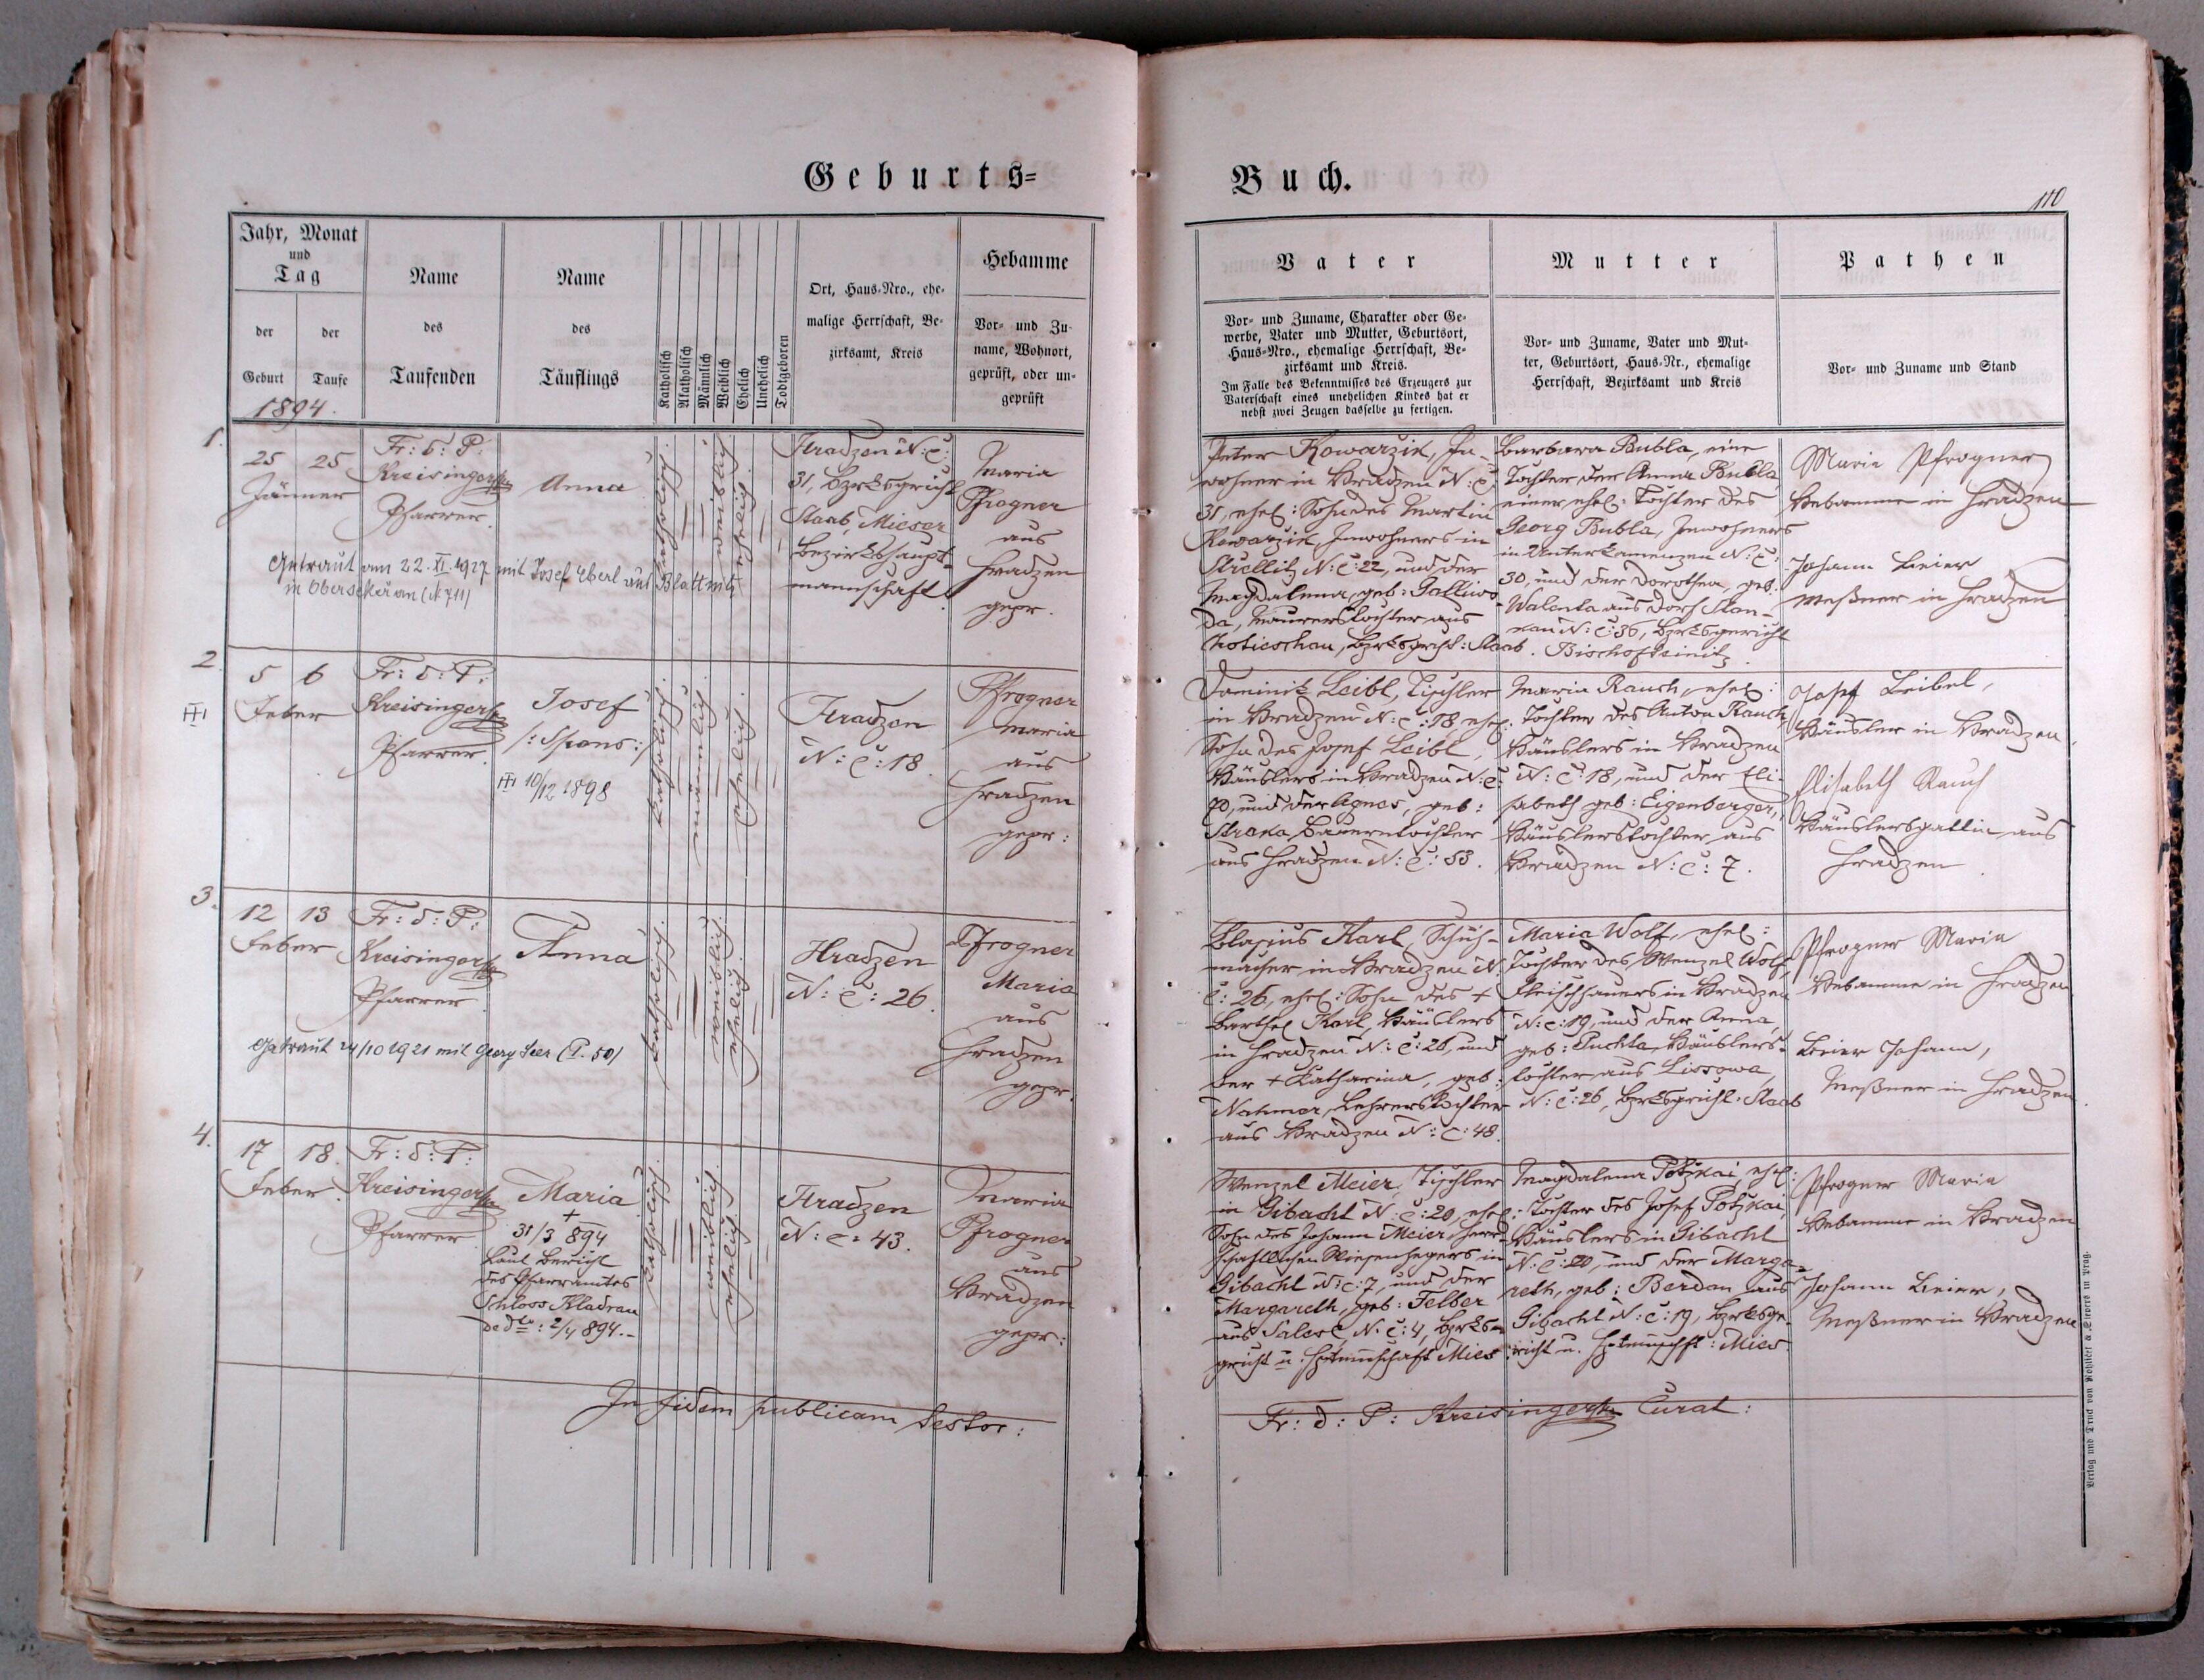 Geburts=
Buch.
110
Jahr, Monat
und
Tag
der
Geburt
der
Taufe
Name
des
Taufenden
Name
des
Täuflings
Katholisch
Akatholisch
Männlich
Weiblich
Ehelich
Unehelich
Todtgeboren
Ort, Haus-Nro., ehe-
malige Herrschaft, Be-
zirksamt, Kreis
Hebamme
Vor- und Zu-
name, Wohnort,
geprüft, oder un-
geprüft
Vater
Vor- und Zuname, Charakter oder Ge-
werbe, Vater und Mutter, Geburtsort,
Haus-Nro., ehemalige Herrschaft, Be-
zirksamt und Kreis.
Im Falle des Bekenntnisses des Erzeugers zur
Vaterschaft eines unehelichen Kindes hat er
nebst zwei Zeugen dasselbe zu fertigen.
Mutter
Vor- und Zuname, Vater und Mut-
ter, Geburtsort, Haus-Nr., ehemalige
Herrschaft, Bezirksamt und Kreis
Pathen
Vor- und Zuname und Stand
1894.
1.
25 25
Jänner
Fr: d: P:
Kreisinger
Pfarrer.
Anna
katholisch
weiblich
ehelich
Hradzen N: C:
31, Bzrksgricht
Staab, Mieser
Bezirkshaupt-
mannschaft.
Maria
Pfrogner
aus
Hradzen
gepr.
Getraut am 22. XI. 1927 mit Josef Eberl aus Blattnitz
in Obersekeřan (N 711)
Peter Kowarzik, In-
wohner in Hradzen N: C:
31, ehel: Sohn des Martin
Kowarzik, Inwohners in
Strellitz N: C: 22, und der
Magdalena, geb: Galliwo-
da, Maurerstochter aus
Chotieschau, Bzrksgricht: Staab.
Barbara Bubla, eine
Tochter der Anna Bubla
einer ehel: Tochter des
Georg Bubla, Inwohners
in Unterkamenzen N: C:
30, und der Dorothea, geb:
Walenta aus Dorf Stan-
kau N: C: 36, Bzrksgericht
Bischofteinitz.
Maria Pfrogner
Hebamme in Hradzen
Johann Beier
Meßner in Hradzen
2.
III
5 6
Feber
Fr: d: P:
Kreisinger
Pfarrer.
Josef
/: Spons:/
III 10/12 1898
katholisch
männlich
ehelich
Hradzen
N: C: 18.
Pfrogner
Maria
aus
Hradzen
gepr:
Dominik Leibl, Tischler
in Hradzen N: C: 18, ehel:
Sohn des Josef Leibl,
Häuslers in Hradzen N: C:
70, und der Agnes, geb:
Straka, Bauerntochter
aus Hradzen N: C: 53.
Maria Rauch, ehel:
Tochter des Anton Rauch,
Häuslers in Hradzen
N: C: 18, und der Eli-
sabeth geb: Eigenberger,
Häuslerstochter aus
Hradzen N: C: 7.
Josef Leibel,
Häusler in Hradzen.
Elisabeth Rauch
Häuslersgattin aus
Hradzen.
3.
12 13
Feber
Fr: d: P:
Kreisinger
Pfarrer
Anna
katholisch
weiblich
ehelich
Hradzen
N: C: 26.
Pfrogner
Maria
aus
Hradzen
gepr.
Getraut 24/10 1921 mit Georg Seer (T. 50)
Blasius Karl, Schuh-
macher in Hradzen N.
C: 26, ehel: Sohn des +
Barthol Karl, Häuslers
in Hradzen N: C: 26, und
der + Katharina, geb:
Nahmer, Lehrerstochter
aus Hradzen N: C: 48.
Maria Wolf, ehel:
Tochter des Wenzel Wolf,
Fleischhauers in Hradzen
N: C: 19, und der Anna,
geb: Puchta, Häuslers-
tochter aus Lissowa,
N: C: 26, Bzrksgricht. Staab
Pfrogner Maria
Hebamme in Hradzen
Beier Johann,
Meßner in Hradzen.
4.
17 18.
Feber.
Fr: d: P:
Kreisinger
Pfarrer
Maria
+
31/3 894
Laut Bericht
des Pfarramtes
Schloss Kladrau
de dto: 2/4 894.-
katholisch
weiblich
ehelich
Hradzen
N: C: 43.
Maria
Pfrogner
aus
Hradzen
gepr:
Wenzel Meier, Tischler
in Gibacht N: C: 20, ehel:
Sohn des Johann Meier, herr-
schaftlichen Wiesenhegers in
Gibacht N: C: 7, und der
Margareth, geb: Felber
aus Salesl N: C: 4, Bzrks-
gricht u. Hptmschaft Mies.
Magdalena Potzkai, ehel:
Tochter des Josef Potzkai
Häuslers in Gibacht
N: C: 20, und der Marga-
reth, geb: Berdan aus
Gibacht N: C: 19, Bzrksge-
richt u. Hptmschft: Mies.
Pfrogner Maria
Hebamme in Hradzen
Johann Beier,
Meßner in Hradzen
In fidem publicam testor:
Fr: d: P: Kreisinger Curat:
Verlag und Druck von Rohliček & Sievers in Prag.